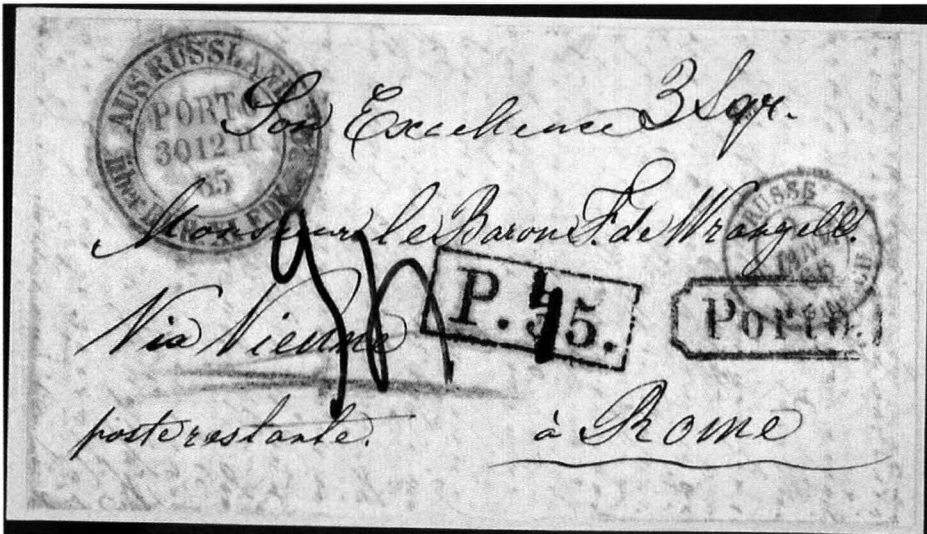 AUS RUSSLAND
PORTO
30 12 II
65
über
Son Excellence 3 Sgr.
Monsieur le Baron F. de Wrangell.
PRUSSE
P. 5.
Porto.
Via Vienne
poste restante.
à Rome